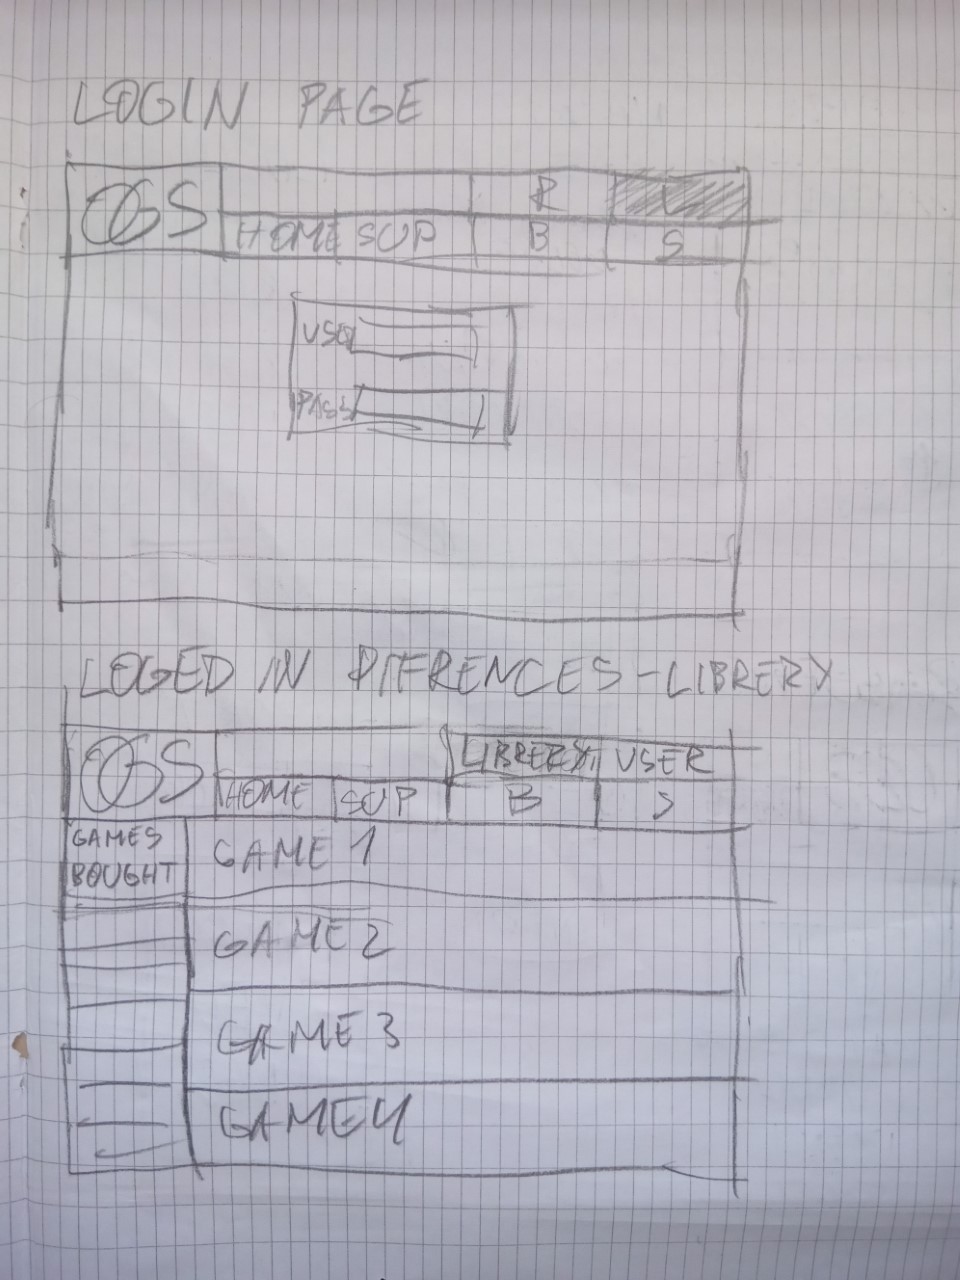 LOGIN PAGE
OGS R L
HOME SUP B S
USER
PASS
LOGED IN DIFERENCES-LIBRERY
OGS LIBRERY USER
HOME SUP B S
GAMES
BOUGHT
GAME 1
GAME 2
GAME 3
GAME 4